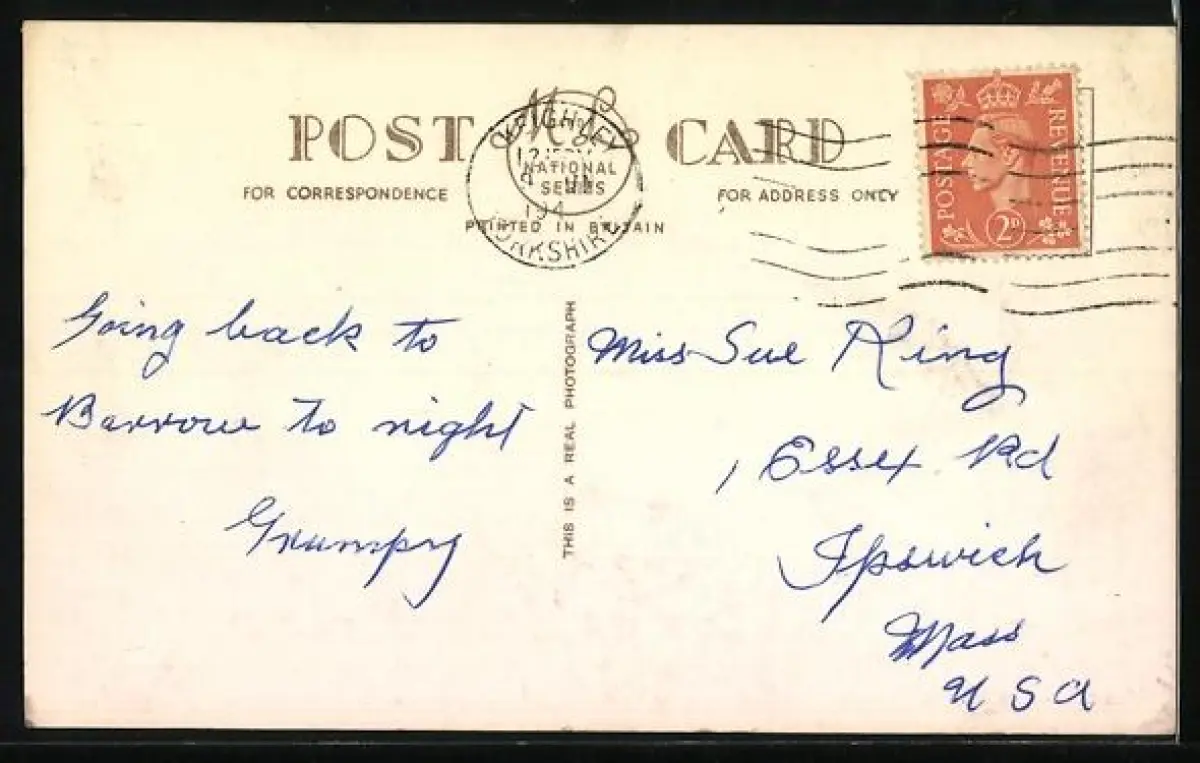 POST CARD
M & L
NATIONAL
SERIES
FOR CORRESPONDENCE
FOR ADDRESS ONLY
PRINTED IN BRITAIN
KEIGHLEY
194
YORKSHIRE
POSTAGE
REVENUE
2D
THIS IS A REAL PHOTOGRAPH
Going back to
Barrow to night
Grumpy
Miss Sue King
1 Essex Rd
Ipswich
Mass
USA